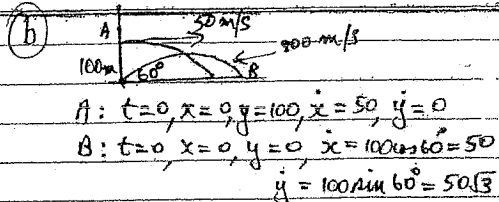 (b)
A 50 m/s
100 m/s
100m 60° B
A: t=0, x=0, y=100, ẋ=50, ẏ=0
B: t=0, x=0, y=0, ẋ=100cos60°=50
ẏ = 100sin60°=50√3